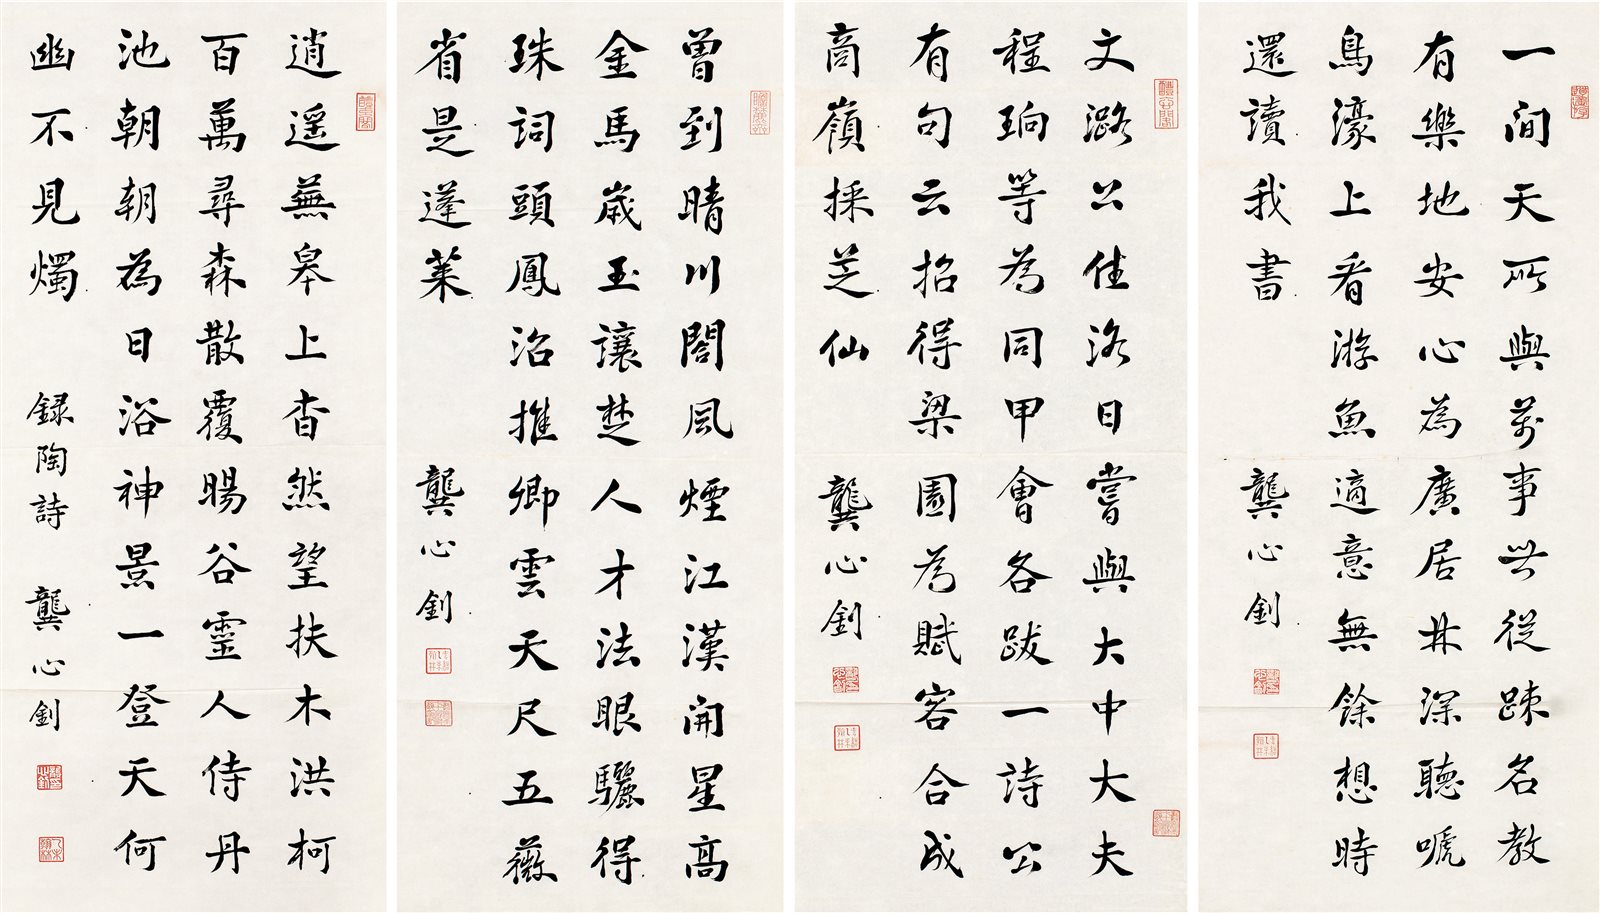 一間天所與萬事世從踈名教
有樂地安心為廣居林深聽嗁
鳥濠上看游魚適意無餘想時
還讀我書
龔心釗
文潞公佳洛日嘗與大中大夫
程珦等為同甲會各跋一詩公
有句云招得梁園為賦客合成
商嶺採芝仙
龔心釗
曾到晴川閣風煙江漢開星高
金馬歲玉讓楚人才法眼驪得
珠詞頭鳳沼推卿雲天尺五薇
省是蓬萊
龔心釗
逍遥蕪皋上杳然望扶木洪柯
百萬尋森散覆暘谷靈人侍丹
池朝朝為日浴神景一登天何
幽不見燭
録陶詩 龔心釗